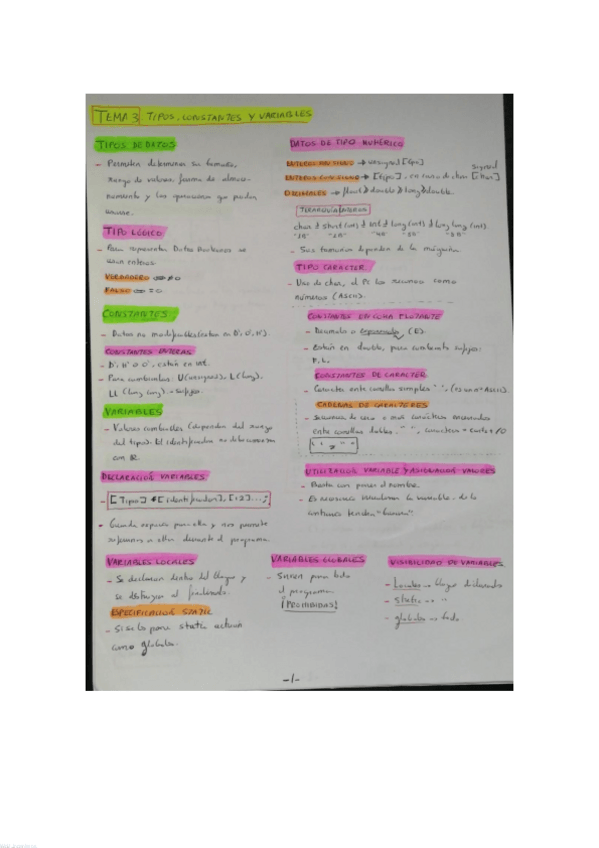 TEMA 3. TIPOS, CONSTANTES Y VARIABLES
TIPOS DE DATOS
- Permiten determinar su tamaño,
rango de valores, forma de almace-
namiento y las operaciones que pueden
usarse.
TIPO LÓGICO
- Para representar Datos Booleanos se
usan enteros.
VERDADERO ⇔ ≠0
FALSO ⇔ =0
CONSTANTES
- Datos no modificables (estan en D', O', H').
CONSTANTES ENTERAS
- D', H' o O', están en int.
- Para cambiarlas: U (unsigned), L (long),
LL (long long). = Sufijos.
VARIABLES
- Valores cambiables (dependen del rango
del tipo). El identificador no debe comenzar
con
DECLARACIÓN VARIABLES
- [Tipo] [identificador], [2]...;
- Guarda espacio para ella y nos permite
referirnos a ella durante el programa.
VARIABLES LOCALES
- Se declaran dentro del bloque y
se destruyen al finalizarlo.
ESPECIFICACIÓN STATIC
- Si se le pone static actúan
como globales.
DATOS DE TIPO NUMÉRICO
→ unsigned [tipo]
→ [tipo], en caso de char signed [char]
DECIMALES → float, double, long double.
JERARQUÍA
char short (int) int long (int) long long (int)
- Sus tamaños dependen de la máquina
TIPO CARACTER
- Uso de char, el Pc los reconoce como
números (ASCII).
CONSTANTES EN COMA FLOTANTE
- Decimales o exponencial, (E).
- Están en double, para cambiarlo sufijos:
F, L.
CONSTANTES DE CARACTER
- Carácter entre comillas simples ' ', (es un nº ASCII).
CADENAS DE CARACTERES
- Secuencia de cero o más caracteres encerrados
entre comillas dobles. " ",
UTILIZACIÓN VARIABLE Y ASIGNACIÓN VALORES
- Basta con poner el nombre.
- Es necesario inicializar la variable, de lo
contrario tendrá "basura".
VARIABLES GLOBALES
- Sirven para todo
el programa
¡PROHIBIDAS!
VISIBILIDAD DE VARIABLES
- Locales → bloque declarado
- static → " "
- globales → todo
-1-